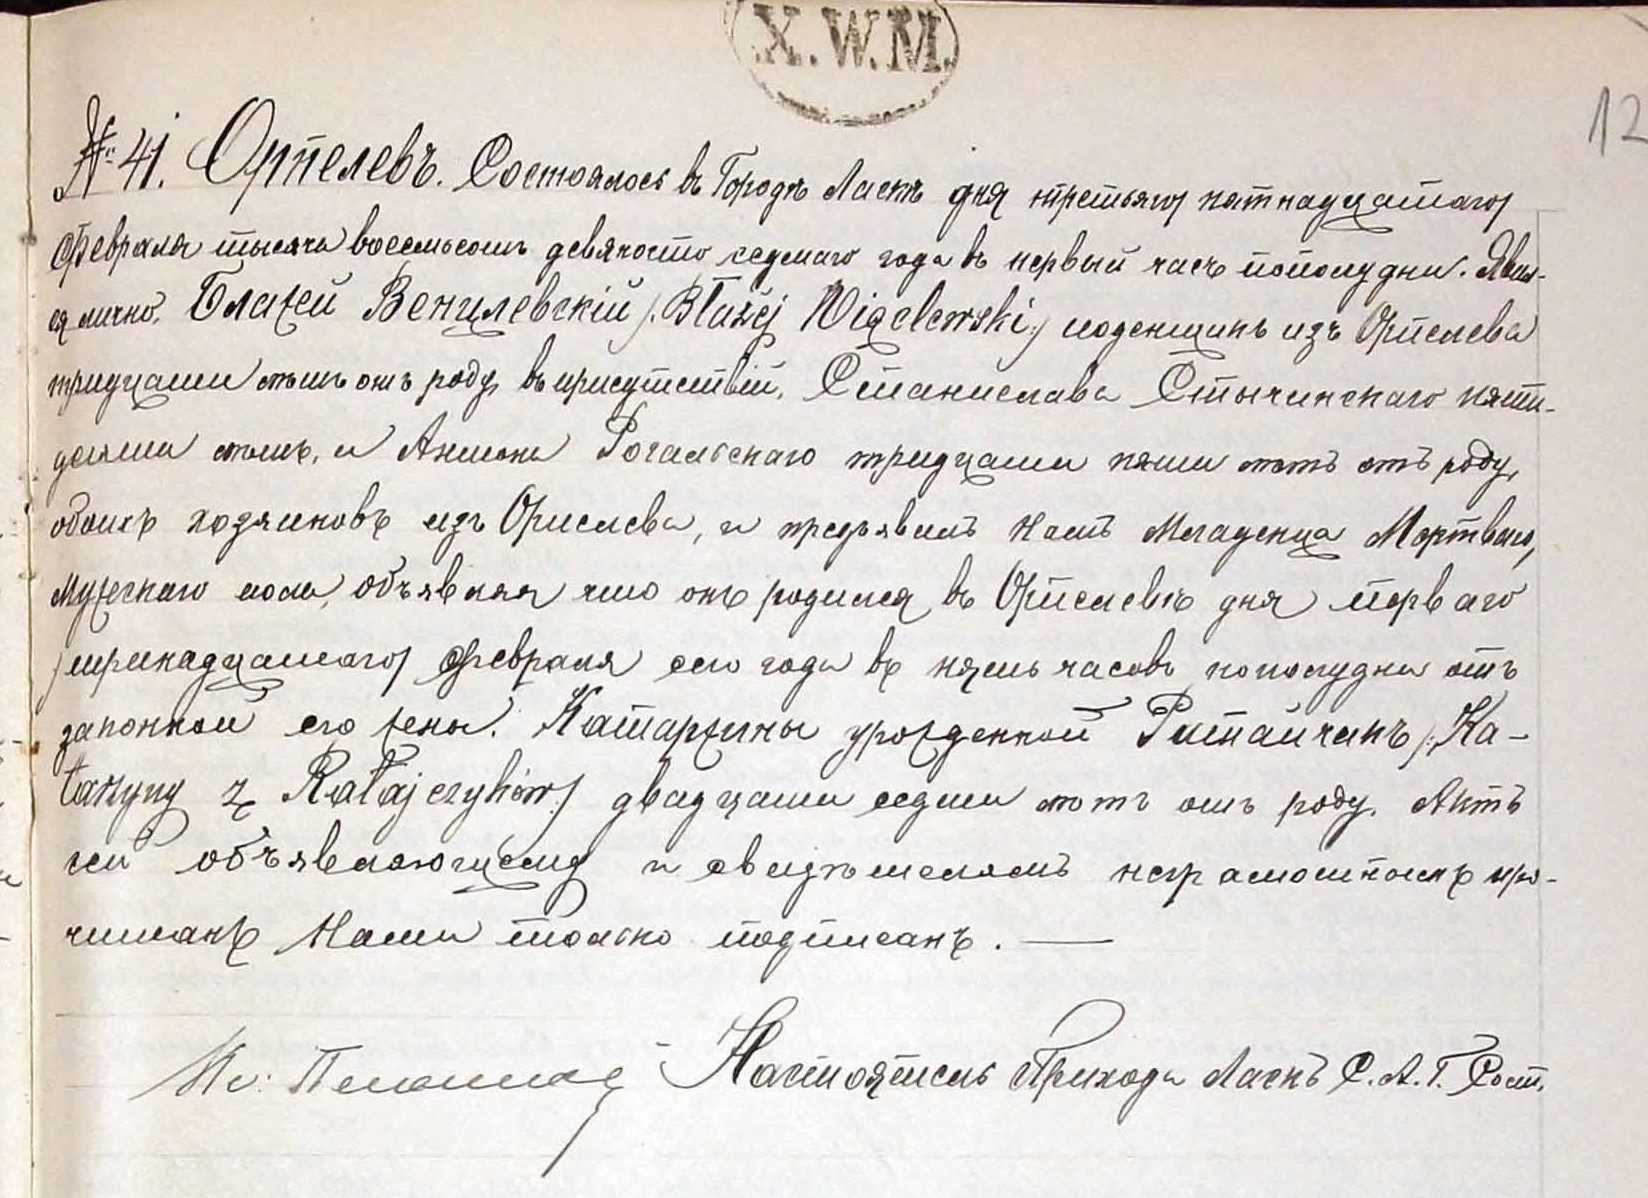 X.W.M.
12
№ 41. Орпелевъ. Состоялось въ Городѣ Ласкѣ дня третьяго/ пятнадцатаго/
Февраля тысяча восемьсотъ девяносто седьмаго года въ первый часъ пополудни. Явил-
ся лично, Блажей Венцлевскій /:Błażej Więclewski:/ поденщикъ изъ Орпелева
тридцати лѣтъ отъ роду, въ присутствіи, Станислава Стычинскаго пяти-
десяти лѣтъ, и Антона Рогальскаго тридцати пяти лѣтъ отъ роду,
обоихъ хозяиновъ изъ Орпелева, и предъявилъ Намъ Младенца Мертваго,
мужескаго пола, объявляя что онъ родился въ Орпелевѣ дня перваго
/тринадцатаго/ Февраля сего года въ пять часовъ пополудни отъ
законной его жены. Катаржины урожденной Ратайчакъ /:Ka-
tarzyny z Ratajczyków:/ двадцати седми лѣтъ отъ роду. Актъ
сей объявляющему и свидѣтелямъ неграмотнымъ про-
читанъ Нами только подписанъ. —
Настоятель Прихода Ласкъ С. А. Г. Сост.